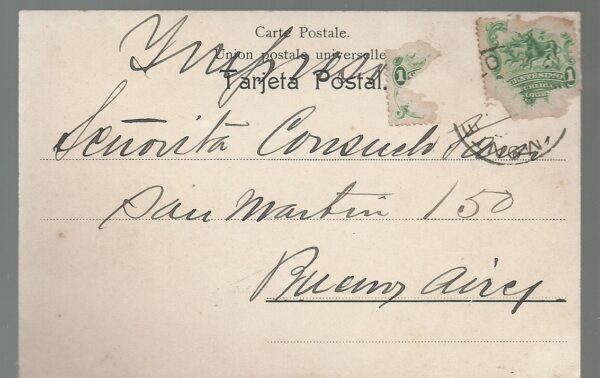 Carte Postale.
Union postale universelle
Tarjeta Postal.
Impreso
1
1
CENTESIMO
Señorita Consuelo
San Martin 150
Buenos Aires